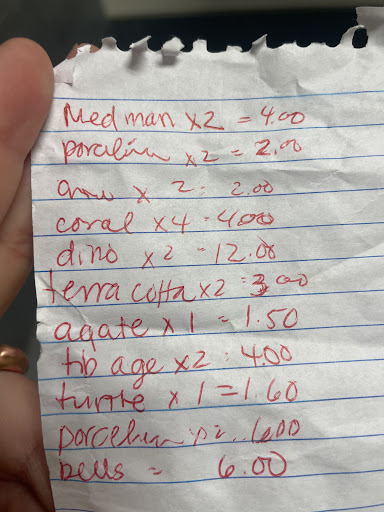 Med man x2 = 4.00
porcelin x2 = 2.00
x 2 = 2.00
coral x4 - 4.00
dino x2 - 12.00
terra cotta x2 = 3.00
agate x 1 = 1.50
tib age x2 = 4.00
turtle x 1 = 1.60
porcelin
bells = 6.00